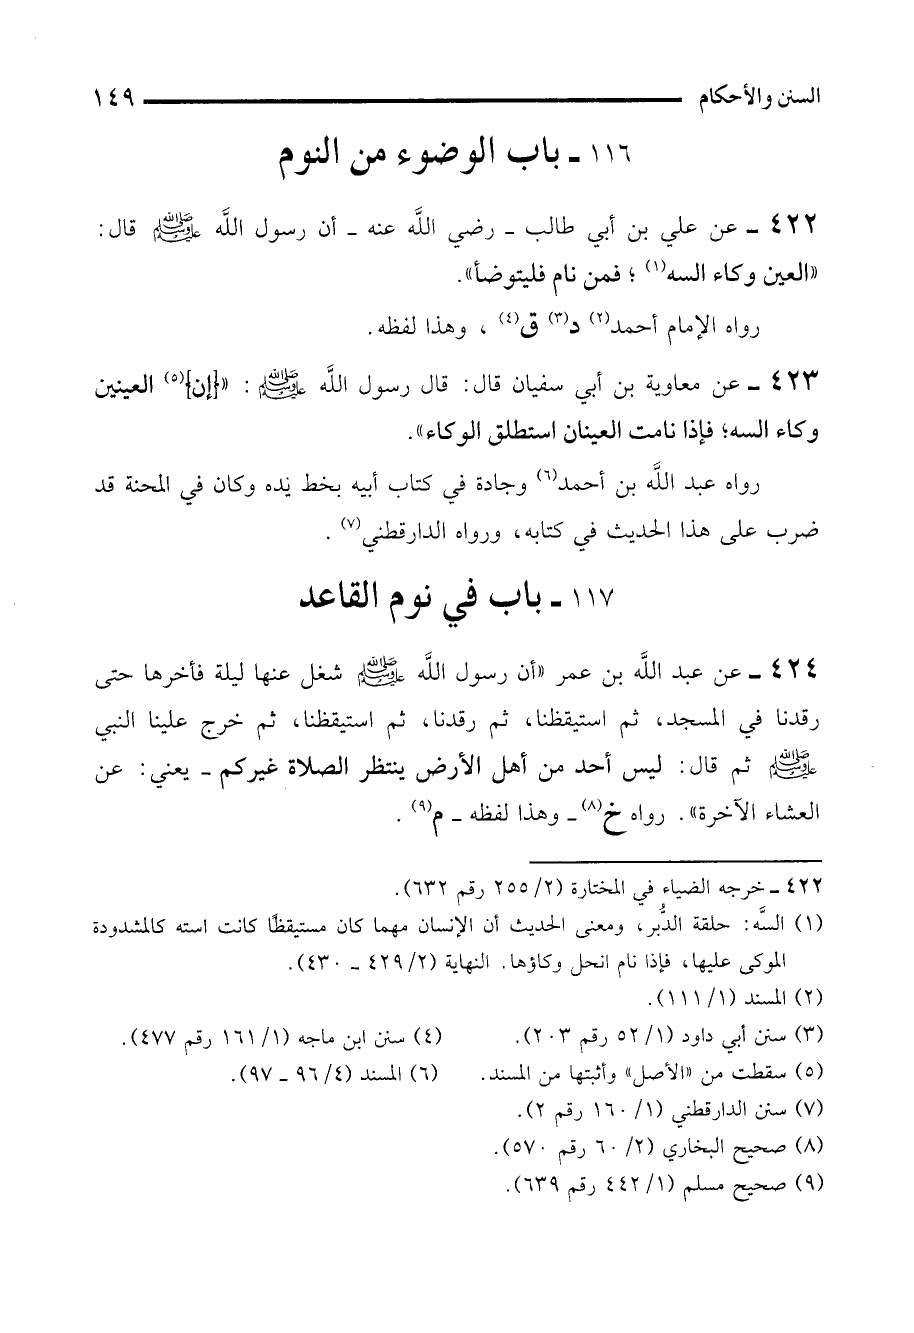 السنن والأحكام ١٤٩
١١٦ ـ باب الوضوء من النوم
٤٢٢ ـ عن علي بن أبي طالب ـ رضي اللَّه عنه ـ أن رسول اللَّه ﷺ قال:
«العين وكاء السه(١) ؛ فمن نام فليتوضأ».
رواه الإمام أحمد(٢) د(٣) ق(٤) ، وهذا لفظه.
٤٢٣ ـ عن معاوية بن أبي سفيان قال: قال رسول اللَّه ﷺ : «[إن](٥) العينين
وكاء السه؛ فإذا نامت العينان استطلق الوكاء».
رواه عبد اللَّه بن أحمد(٦) وجادة في كتاب أبيه بخط يده وكان في المحنة قد
ضرب على هذا الحديث في كتابه، ورواه الدارقطني(٧) .
١١٧ ـ باب في نوم القاعد
٤٢٤ ـ عن عبد اللَّه بن عمر «أن رسول اللَّه ﷺ شغل عنها ليلة فأخرها حتى
رقدنا في المسجد، ثم استيقظنا، ثم رقدنا، ثم استيقظنا، ثم خرج علينا النبي
ﷺ ثم قال: ليس أحد من أهل الأرض ينتظر الصلاة غيركم ـ يعني: عن
العشاء الآخرة». رواه خ(٨) ـ وهذا لفظه ـ م(٩) .
٤٢٢ ـ خرجه الضياء في المختارة (٢/ ٢٥٥ رقم ٦٣٢).
(١) السَّه: حلقة الدُّبر، ومعنى الحديث أن الإنسان مهما كان مستيقظًا كانت استه كالمشدودة
الموكى عليها، فإذا نام انحل وكاؤها. النهاية (٢/ ٤٢٩ ـ ٤٣٠).
(٢) المسند (١/ ١١١).
(٣) سنن أبي داود (١/ ٥٢ رقم ٢٠٣). (٤) سنن ابن ماجه (١/ ١٦١ رقم ٤٧٧).
(٥) سقطت من «الأصل» وأثبتها من المسند. (٦) المسند (٤/ ٩٦ ـ ٩٧).
(٧) سنن الدارقطني (١/ ١٦٠ رقم ٢).
(٨) صحيح البخاري (٢/ ٦٠ رقم ٥٧٠).
(٩) صحيح مسلم (١/ ٤٤٢ رقم ٦٣٩).